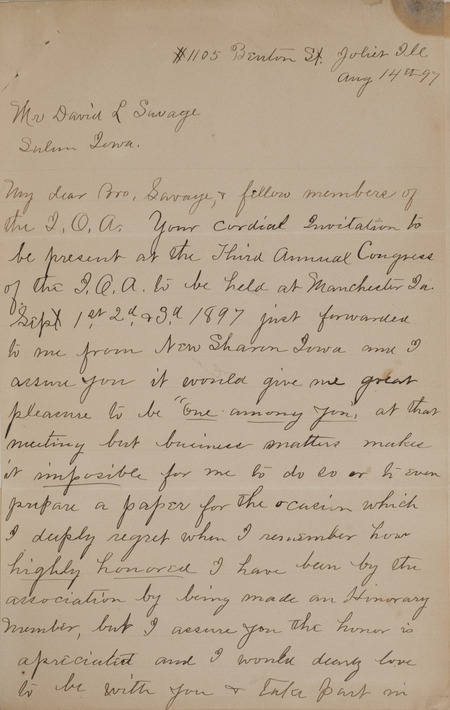 #1105 Benton St. Joliet Ill
Aug 14th 97
Mr David L Savage
Salem Iowa.
My dear Bro. Savage, & fellow members of
the I. O. A. Your cordial Invitation to
be present at the Third Annual Congress
of the I. O. A. to be held at Manchester Ia.
Sept 1st 2d & 3d 1897 just forwarded
to me from New Sharon Iowa and I
assure you it would give me great
pleasure to be "one among you", at that
meeting but business matters makes
it imposible for me to do so or to even
prepare a paper for the ocasion which
I deeply regret when I remember how
highly honored I have been by the
association by being made an Honorary
Member, but I assure you the honor is
apreciated and I would dearly love
to be with you & take part in